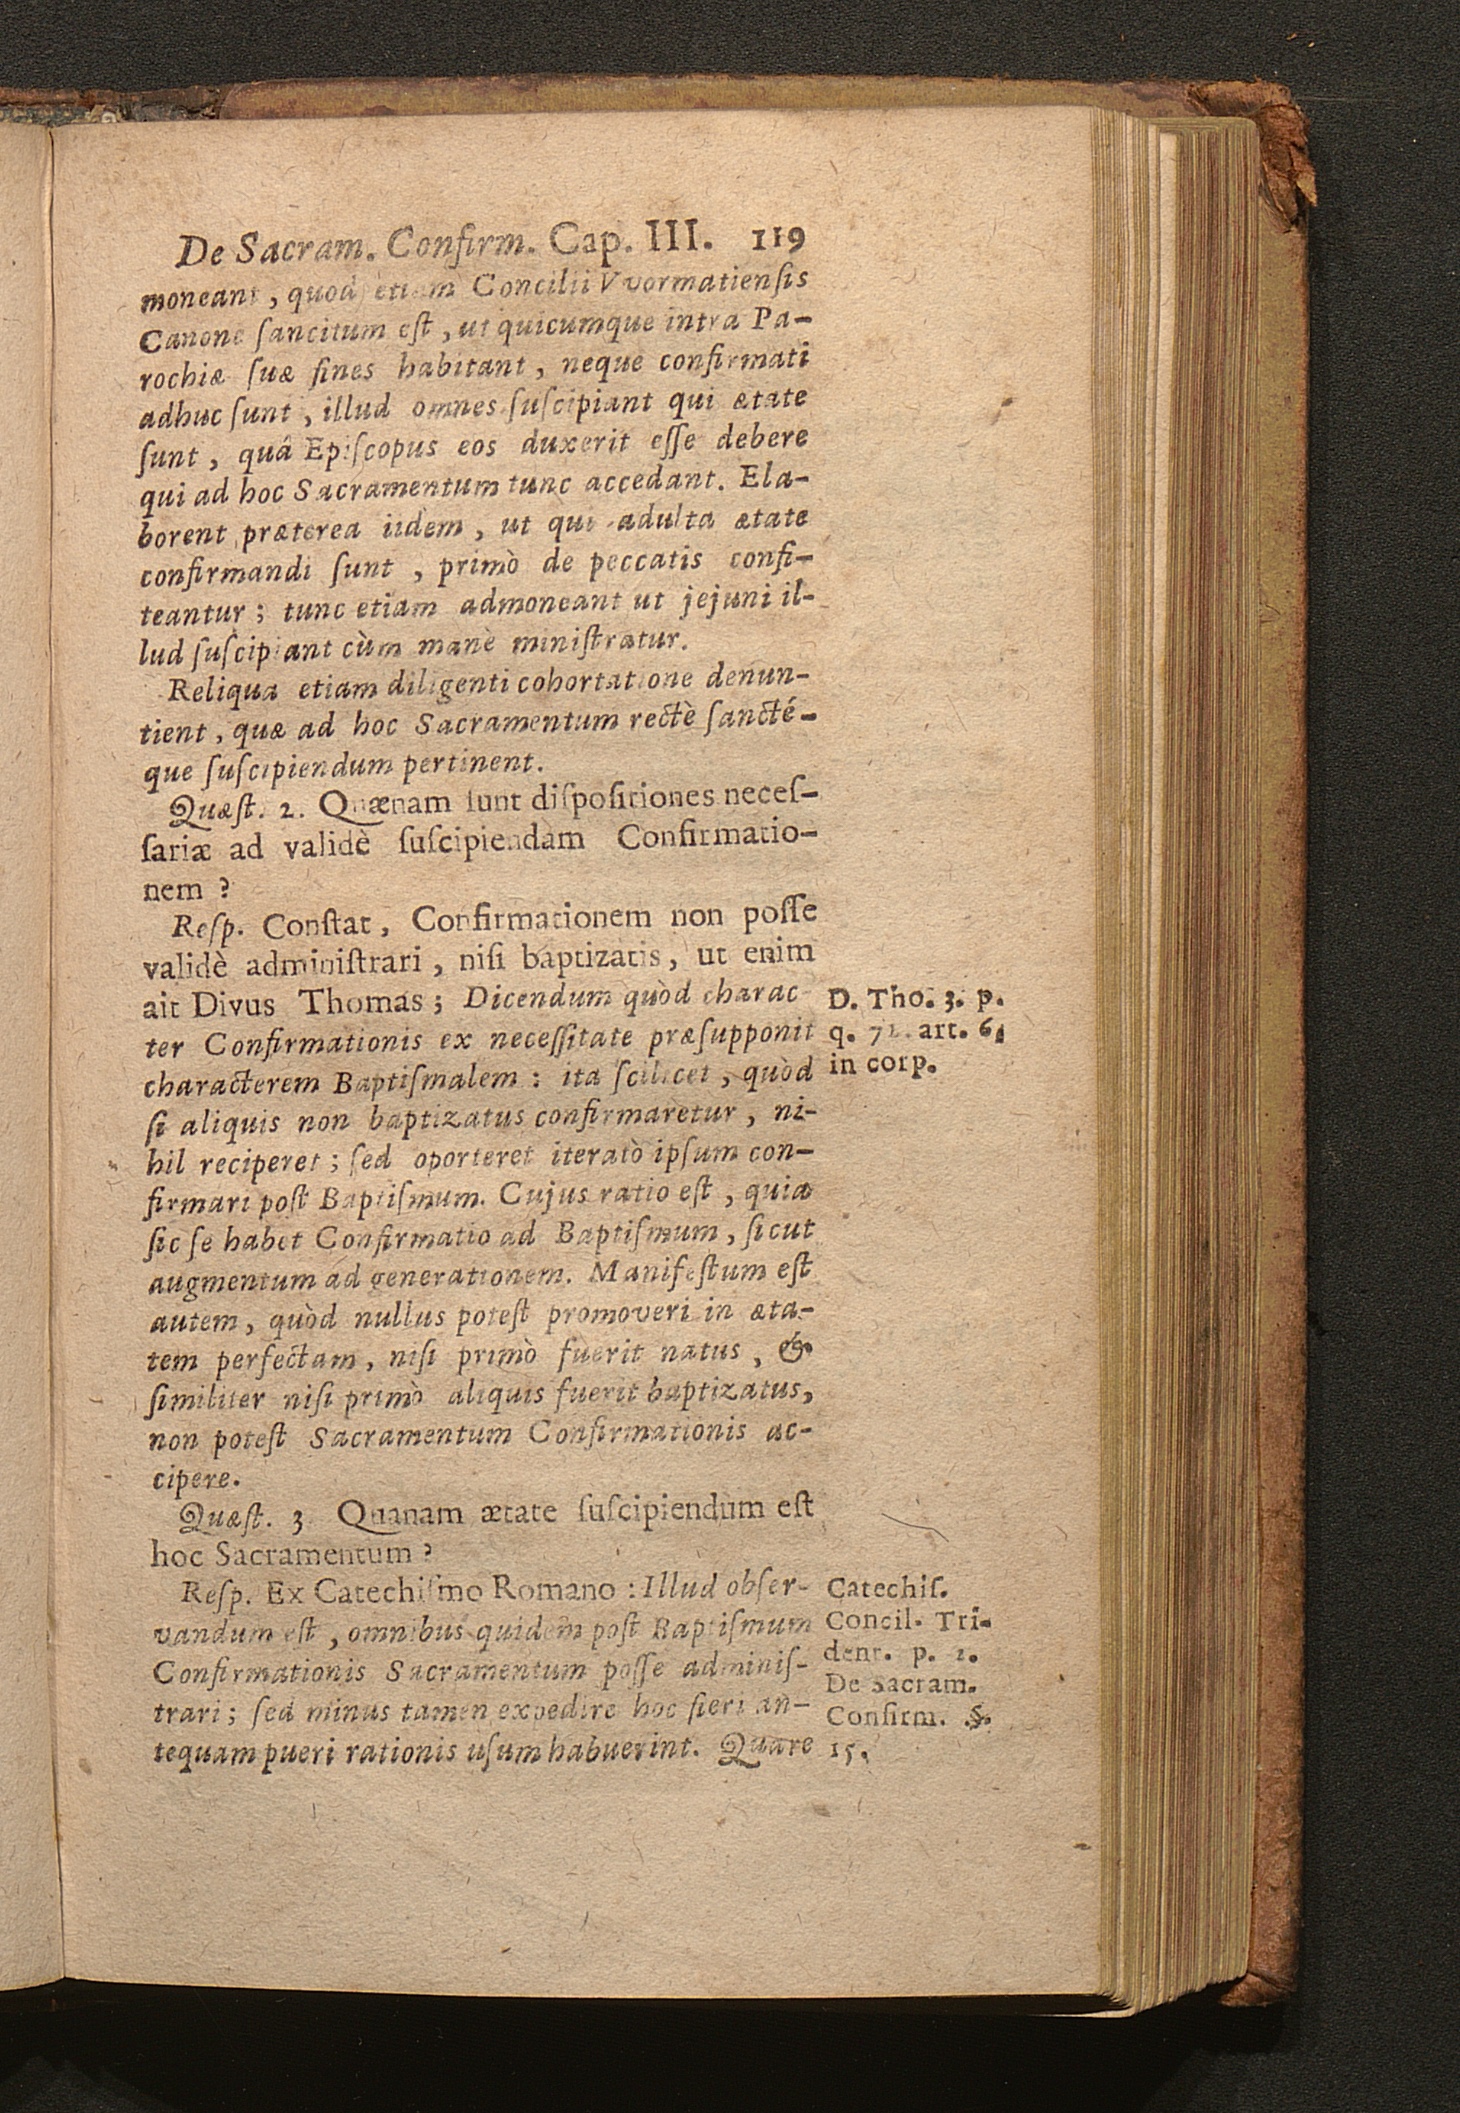 De Sacram. Confirm. Cap. III. 119
moneant, quod etiam Concilii Vvormatiensis
Canone ſancitum eſt, ut quicumque intra Pa-
rochiæ ſuæ fines habitant, neque confirmati
adhuc ſunt, illud omnes ſuſcipiant qui ætate
ſunt, quâ Epiſcopus eos duxerit eſſe debere
qui ad hoc Sacramentum tunc accedant. Ela-
borent præterea iidem, ut qui adulta ætate
confirmandi ſunt, primò de peccatis confi-
teantur; tunc etiam admoneant ut jejuni il-
lud ſuſcipiant cùm manè miniſtratur.
Reliqua etiam diligenti cohortatione denun-
tient, quæ ad hoc Sacramentum rectè ſancté-
que ſuſcipiendum pertinent.
Quæſt. 2. Quænam ſunt diſpoſitiones neceſ-
ſariæ ad validè ſuſcipiendam Confirmatio-
nem?
Reſp. Conſtat, Confirmationem non poſſe
validè adminiſtrari, niſi baptizatis, ut enim
ait Divus Thomas; Dicendum quòd charac-
ter Confirmationis ex neceſſitate præſupponit
characterem Baptiſmalem: ita ſcilicet, quòd
ſi aliquis non baptizatus confirmaretur, ni-
hil reciperet; ſed oporteret iteratò ipſum con-
firmari poſt Baptiſmum. Cujus ratio eſt, quia
ſic ſe habet Confirmatio ad Baptiſmum, ſicut
augmentum ad generationem. Manifeſtum eſt
autem, quòd nullus poteſt promoveri in æta-
tem perfectam, niſi primò fuerit natus, &
ſimiliter niſi primò aliquis fuerit baptizatus,
non poteſt Sacramentum Confirmationis ac-
cipere.
Quæſt. 3 Quanam ætate ſuſcipiendum eſt
hoc Sacramentum?
Reſp. Ex Catechiſmo Romano: Illud obſer-
vandum eſt, omnibus quidem poſt Baptiſmum
Confirmationis Sacramentum poſſe adminiſ-
trari; ſed minus tamen expedire hoc fieri an-
tequam pueri rationis uſum habuerint. Quare
D. Tho. 3. p.
q. art. 6.
in corp.
Catechiſ.
Concil. Tri-
dent. p. 2.
De Sacram.
Confirm. §.
15.